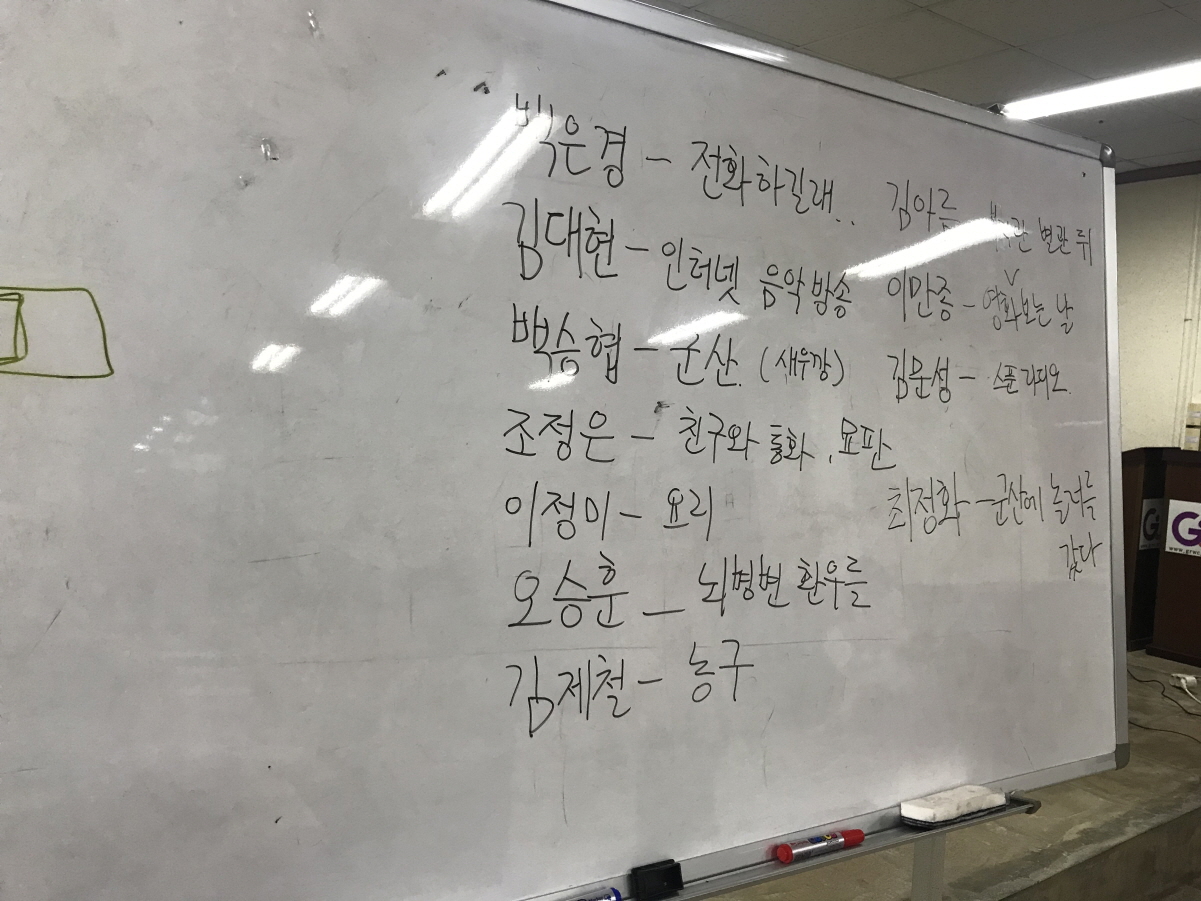 백은경 - 전화하길래..
김대현 - 인터넷 음악방송
백승협 - 군산. (새우깡)
조정은 - 친구와 통화, 묘판
이정미 - 요리
오승훈 - 뇌병변 환우를
김제철 - 농구
김아름 - 변관 뒤
이만종 - 영화보는 날
김문성 - 스푼라디오.
최정화 - 군산에 놀러를
갔다
G
www.grwc